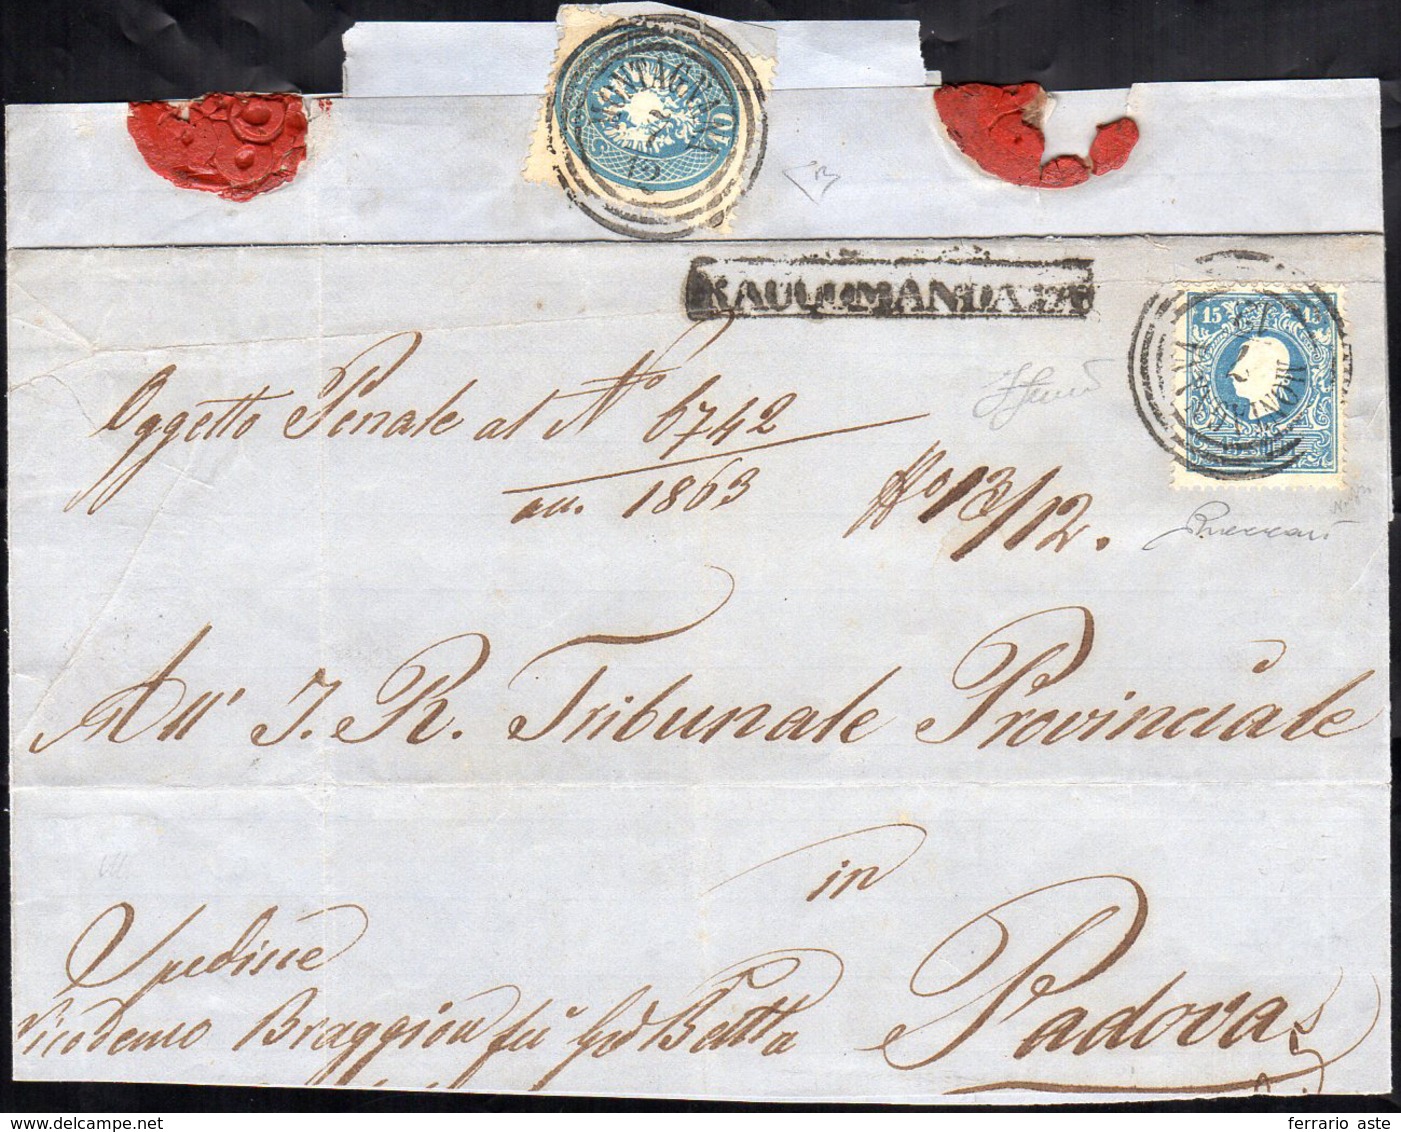 MONTAGNANA
2
12
RACCOMANDATA
15 15
MONTAGNANA
Oggetto Penale al N° 6742
au. 1863
13/12.
All' I. R. Tribunale Provinciale
in
Padova
Spedisce
Nicodemo Braggion fu Gio Batta
ferrario aste